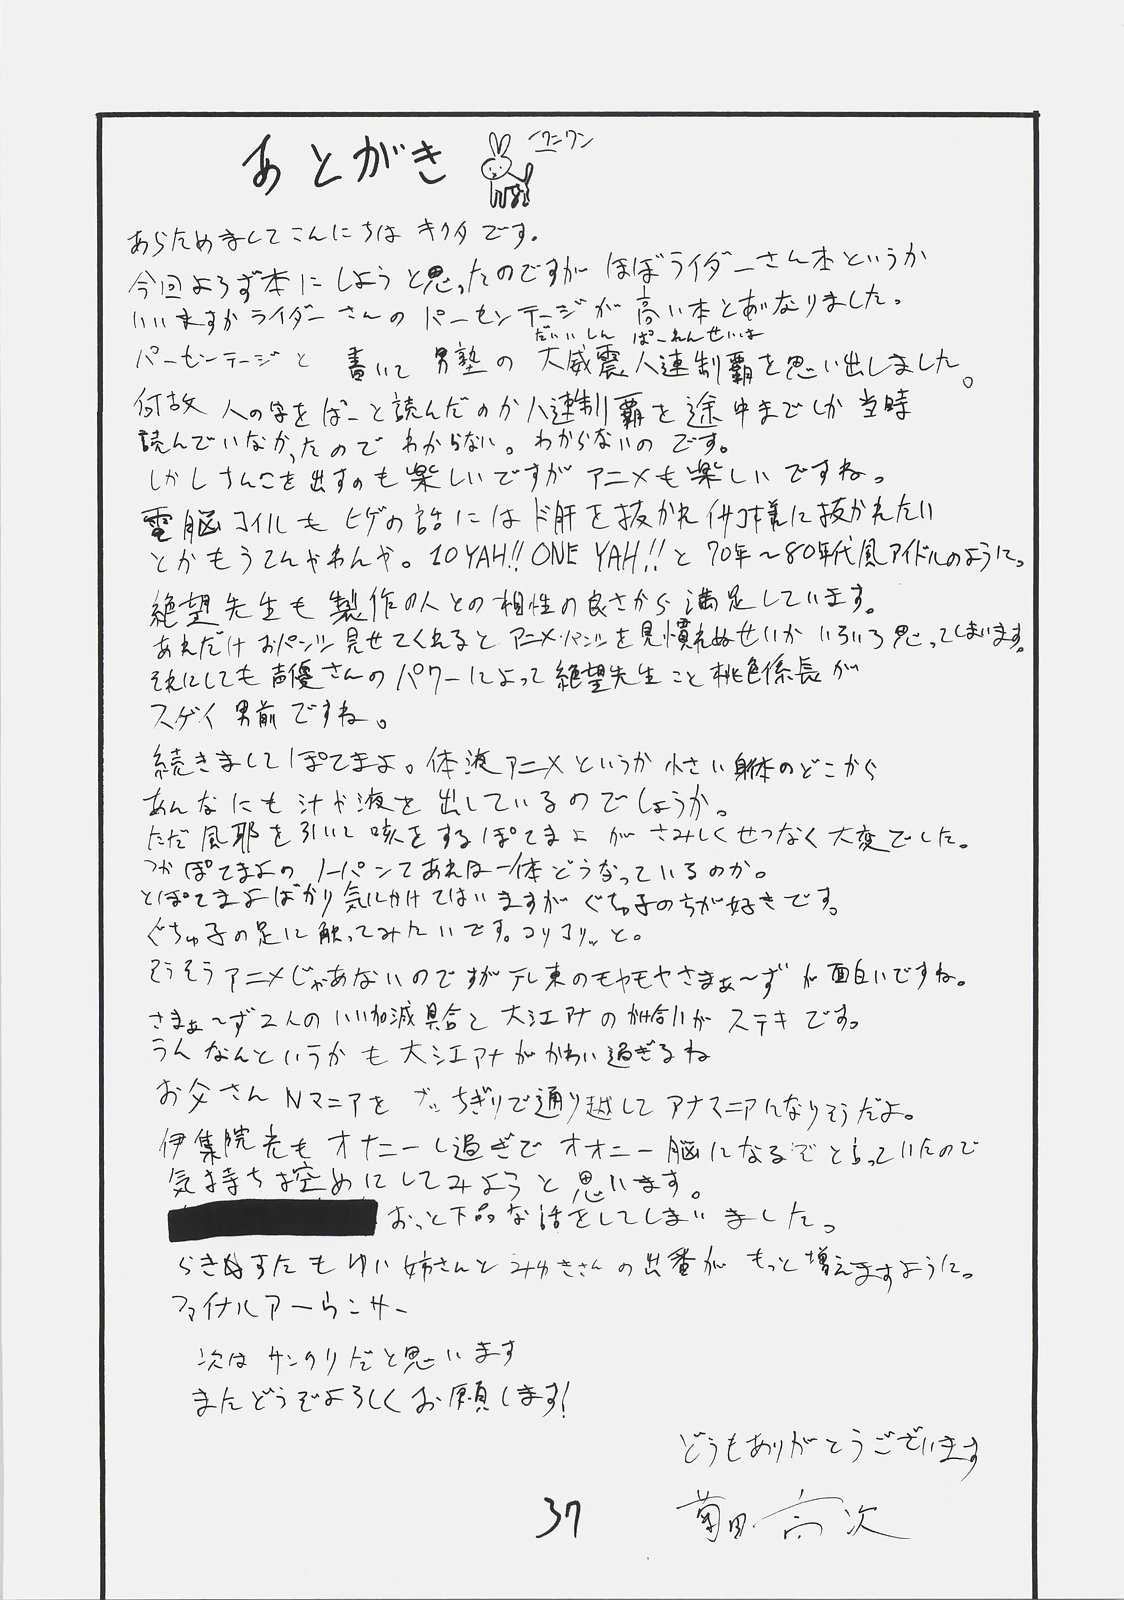 あとがき
ワンワン
あらためましてこんにちは キクタです。
今回よろず本にしようと思ったのですが ほぼライダーさん本というか
いいますかライダーさんのパーセンテージが高い本とあいなりました。
だいいしん ぱーれんせいは
パーセンテージと 書いて 男塾の 大威震八連制覇を思い出しました。
何故 八の字をぱーと読んだのか 八連制覇を途中までしか当時
読んでいなかったので わからない。わからないのです。
しかしさんこを出すのも楽しいですが アニメも楽しいですね。
電脳コイルも ヒゲの話にはド肝を抜かれ イサコ様に抜かれたい
とかもうてんやわんや。10YAH!! ONE YAH!! と 70年〜80年代風アイドルのように。
絶望先生も 製作の人との相性の良さから 満足しています。
あれだけおパンツ見せてくれると アニメ・パンツを見慣れぬせいか いろいろ思ってしまいます。
それにしても 声優さんのパワーによって絶望先生こと桃色係長が
スゲイ 男前ですね。
続きまして ぽてまよ。体液アニメというか 小さい身体のどこから
あんなにも汁や液を出しているのでしょうか。
ただ 風邪を引いて 咳をするぽてまよ がさみしくせつなく大変でした。
つか ぽてまよのノーパンてあれは一体どうなっているのか。
とぽてまよばかり気にかけてはいますが ぐちゅ子のちが好きです。
ぐちゅ子の足に触ってみたいです。コリコリッと。
そうそうアニメじゃあないのですがテレ東のモヤモヤさまぁ〜ずが面白いですね。
さまぁ〜ず2人のいい加減具合と 大江アナの 絡がステキです。
うん なんというかも 大江アナがかわい過ぎるね
お父さん Nマニアを ブッちぎりで通り越して アナマニアになりそうだよ。
伊集院光もオナニーし過ぎで オオニー脳になるぞと言っていたので
気持ち控めにしてみようと思います。
おっと下品な話をしてしまいました。
らき☆すたも ゆい姉さんと みゆきさんの出番が もっと増えますように。
ファイナルアーらンサー
次は サンクリだと思います
またどうぞよろしくお願します!
どうもありがとうございます
菊田高次
37